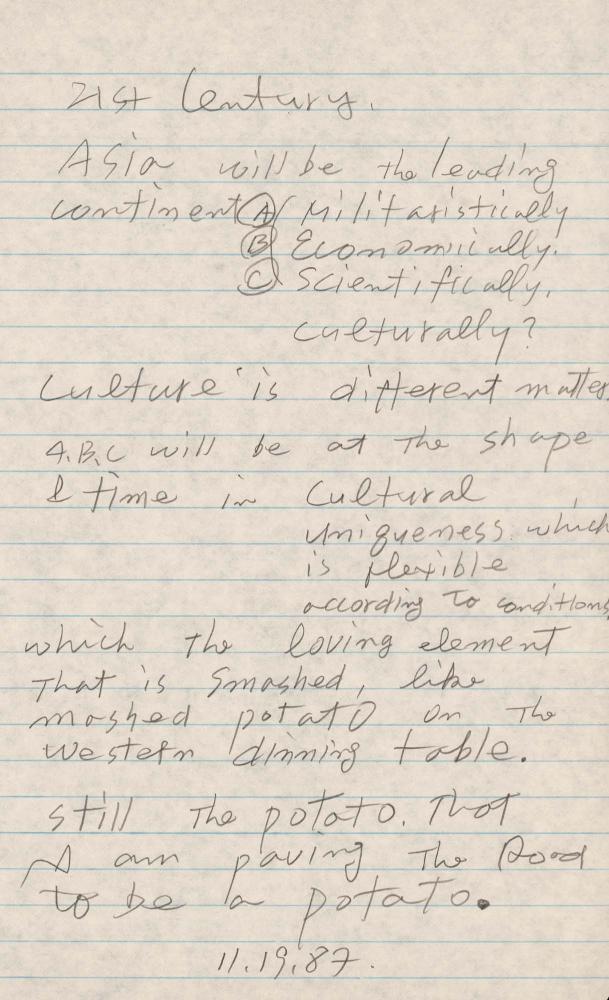 21st Century.
Asia will be the leading
continent Ⓐ Militaristically
Ⓑ Economically.
Ⓒ Scientifically.
culturally?
Culture is different matter.
A.B.C will be at the shape
& time in Cultural
uniqueness. which
is flexible
according to conditions,
which the loving element
that is smashed, like
mashed potato on the
western dinning table.
still the potato. That
I am paving the Road
to be a potato.
11.19.87.